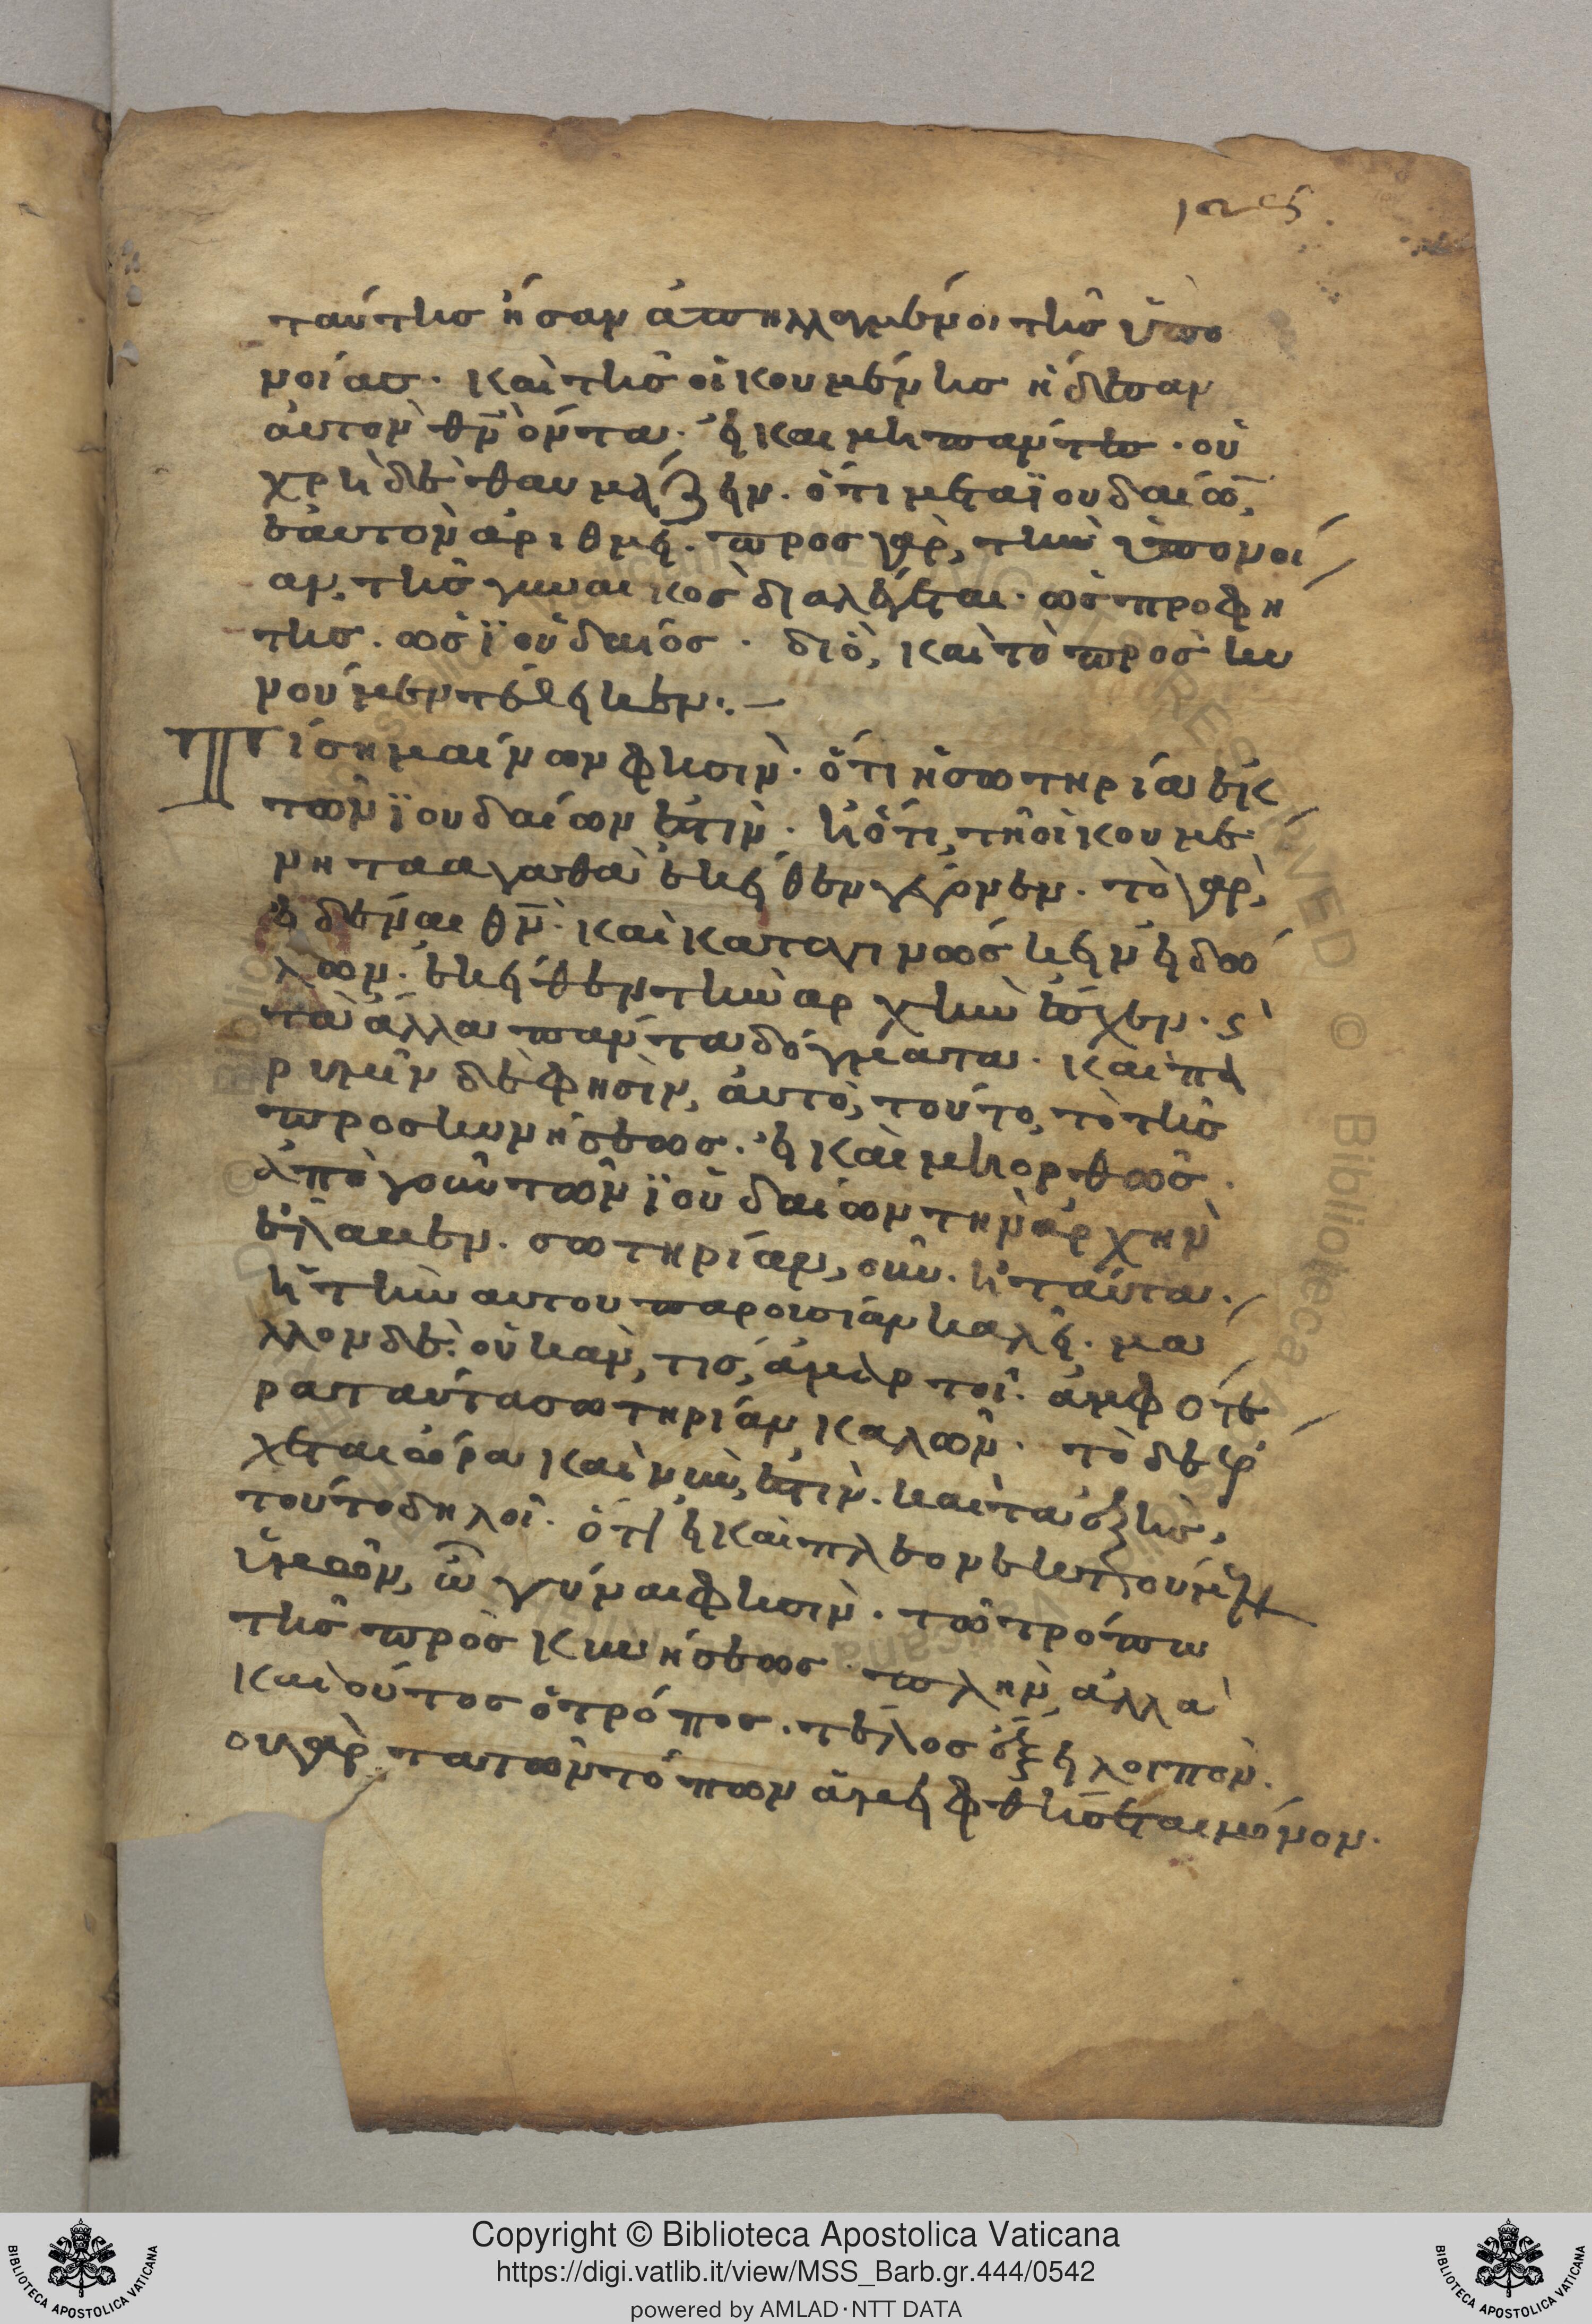 ταύτης ἦσαν ἀπηλλαγμένοι τῆς ὑπο
νοίας. καὶ τῆς οἰκουμένης ἤδεσαν
αὐτὸν θ̅ν̅ ὄντα. εἰ καὶ μὴ πάντες. οὐ
χρὴ δὲ θαυμάζειν. ὅτι μετὰ ϊουδαίω̅
ἑαυτὸν ἀριθμεῖ. πρὸς γὰρ, τὴν ὑπόνοι
αν, τῆς γυναικὸς διαλέγεται. ὡς προφή
της. ὡς ϊουδαῖος. διὸ, καὶ τὸ προσκυ
νοῦμεν τέθεικεν:
Τί σημαίνων φησὶν. ὅτι ἡ σωτηρία ἐκ
τῶν ϊουδαίων ἐστὶν. ἢ ὅτι, τῇ οἰκουμέ
νη τὰ ἀγαθὰ ἐκεῖθεν γέγονεν. τὸ γὰρ,
εἰδέναι θ̅ν̅. καὶ καταγινώσκειν εἰδώ
λων. ἐκεῖθεν τὴν ἀρχὴν ἔσχεν. ϛ
τὰ ἄλλα πάντα δόγματα. καὶ πα
ρ υμῖν δέ φησιν, αὐτὸ, τοῦτο, τὸ τῆς
προσκυνήσεως. εἰ καὶ μὴ ὀρθῶς.
ἀπὸ γοῦν τῶν ϊουδαίων τὴν ἀρχὴν
ἔλαβεν. σωτηρίαν, οὖν. ἢ ταῦτα.
ἢ τὴν αὐτοῦ παρουσίαν καλεῖ. μᾶ
λλον δὲ. οὐκ ἄν, τις, ἁμάρτοι. ἀμφότε
ρα ταῦτα σωτηρίαν καλῶν. τὸ δὲ ἔρ
χεται ὥρα καὶ νῦν, ἐστὶν. κατὰ ἑξῆς,
τοῦτο δηλοῖ. ὅτι εἰ καὶ πλέον ἐκ τούτου
ὑμῶν, ὦ γύναι φησὶν. τῶ τρόπω
τῆς προσκυνήσεως. πλὴν ἀλλὰ
καὶ οὗτος ὁ τρόπος. τέλος ἕξει λοιπόν.
οὐ γὰρ τὰ τῶν τόπων ἀμειφθήσεται μόνον.
Copyright © Biblioteca Apostolica Vaticana
https://digi.vatlib.it/view/MSS_Barb.gr.444/0542
powered by AMLAD·NTT DATA
BIBLIOTECA APOSTOLICA VATICANA
BIBLIOTECA APOSTOLICA VATICANA